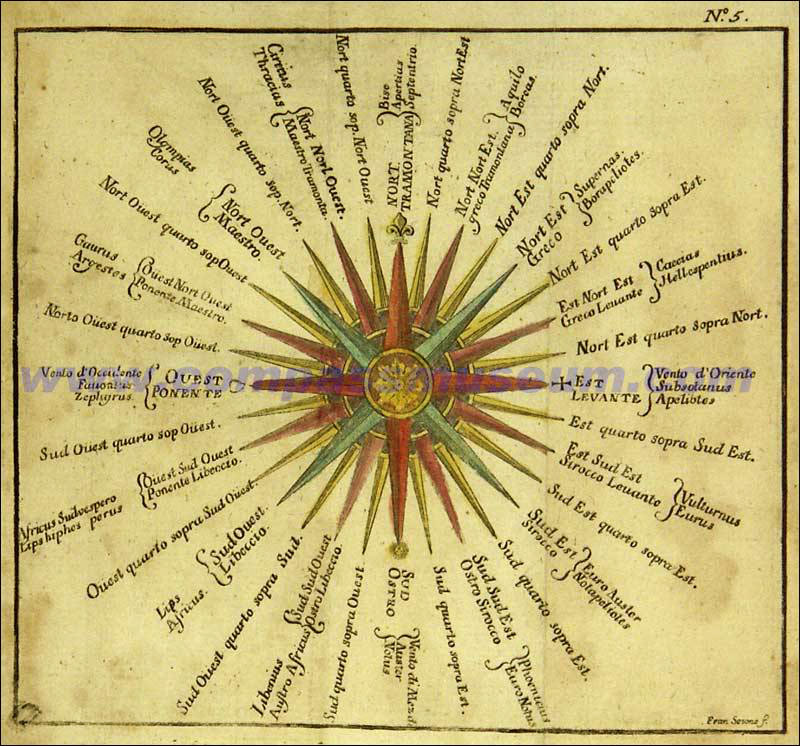 Nº. 5.
NORT.
TRAMONTANA
Bise
Apertias
Septentrio.
Nort quarto sopra Nort Est
Nort Nort Est.
greco Tramontana
Aquilo
Boreas.
Nort Est quarto sopra Nort.
Nort Est
Greco
Supernas.
Borapeliotes.
Nort Est quarto sopra Est.
Est Nort Est
Greco Levante
Caecias
Hellespentius.
Nort Est quarto sopra Nort.
Est
LEVANTE
Vento d'Oriente
Subsolanus
Apeliotes
Est quarto sopra Sud Est.
Est Sud Est
Sirocco Levante
Vulturnus
Eurus
Sud Est quarto sopra Est.
Sud Est
Sirocco
Euro Auster
Notapeliotes
Sud quarto sopra Est.
Sud Sud Est
Ostro Sirocco
Phoenicius
Euro Notus
Sud quarto sopra Est.
SUD
OSTRO
Vento di Mez.di
Auster
Notus
Sud quarto sopra Ouest
Sud Sud Ouest
Ostro Libeccio.
Libenuus
Austro Africus
Sud Ouest quarto sopra Sud.
Sud Ouest.
Libeccio.
Lips
Africus.
Ouest quarto sopra Sud Ouest.
Ouest Sud Ouest
Ponente Libeccio.
Africus Sudvespero
Lips hiphes perus
Sud Ouest quarto sop Ouest.
OUEST
PONENTE
Vento d'Occidente
Fauonius
Zephyrus.
Norto Ouest quarto sop Ouest.
Ouest Nort Ouest
Ponente Maestro.
Gaurus
Argestes
Nort Ouest quarto sop Ouest
Nort Ouest
Maestro.
Olympias
Corus
Nort Ouest quarto sop. Nort.
Nort Nort Ouest.
Maestro Tramonta.
Circius
Thracius
Nort quarto sop. Nort Ouest
www.compassmuseum.com
Fran Sesone f.